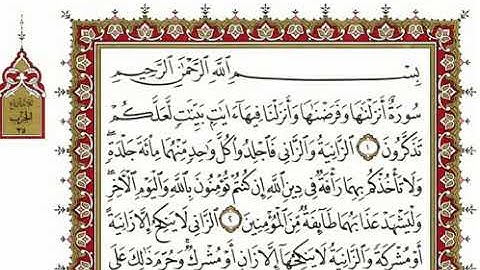 بِسْمِ ٱللَّهِ ٱلرَّحْمَٰنِ ٱلرَّحِيمِ
سُورَةٌ أَنزَلْنَٰهَا وَفَرَضْنَٰهَا وَأَنزَلْنَا فِيهَآ ءَايَٰتٍۭ بَيِّنَٰتٍ لَّعَلَّكُمْ
تَذَكَّرُونَ ١ ٱلزَّانِيَةُ وَٱلزَّانِى فَٱجْلِدُوا۟ كُلَّ وَٰحِدٍ مِّنْهُمَا مِا۟ئَةَ جَلْدَةٍ
وَلَا تَأْخُذْكُم بِهِمَا رَأْفَةٌ فِى دِينِ ٱللَّهِ إِن كُنتُمْ تُؤْمِنُونَ بِٱللَّهِ وَٱلْيَوْمِ ٱلْءَاخِرِ
وَلْيَشْهَدْ عَذَابَهُمَا طَآئِفَةٌ مِّنَ ٱلْمُؤْمِنِينَ ٢ ٱلزَّانِى لَا يَنكِحُ إِلَّا زَانِيَةً
أَوْ مُشْرِكَةً وَٱلزَّانِيَةُ لَا يَنكِحُهَآ إِلَّا زَانٍ أَوْ مُشْرِكٌ وَحُرِّمَ ذَٰلِكَ عَلَى